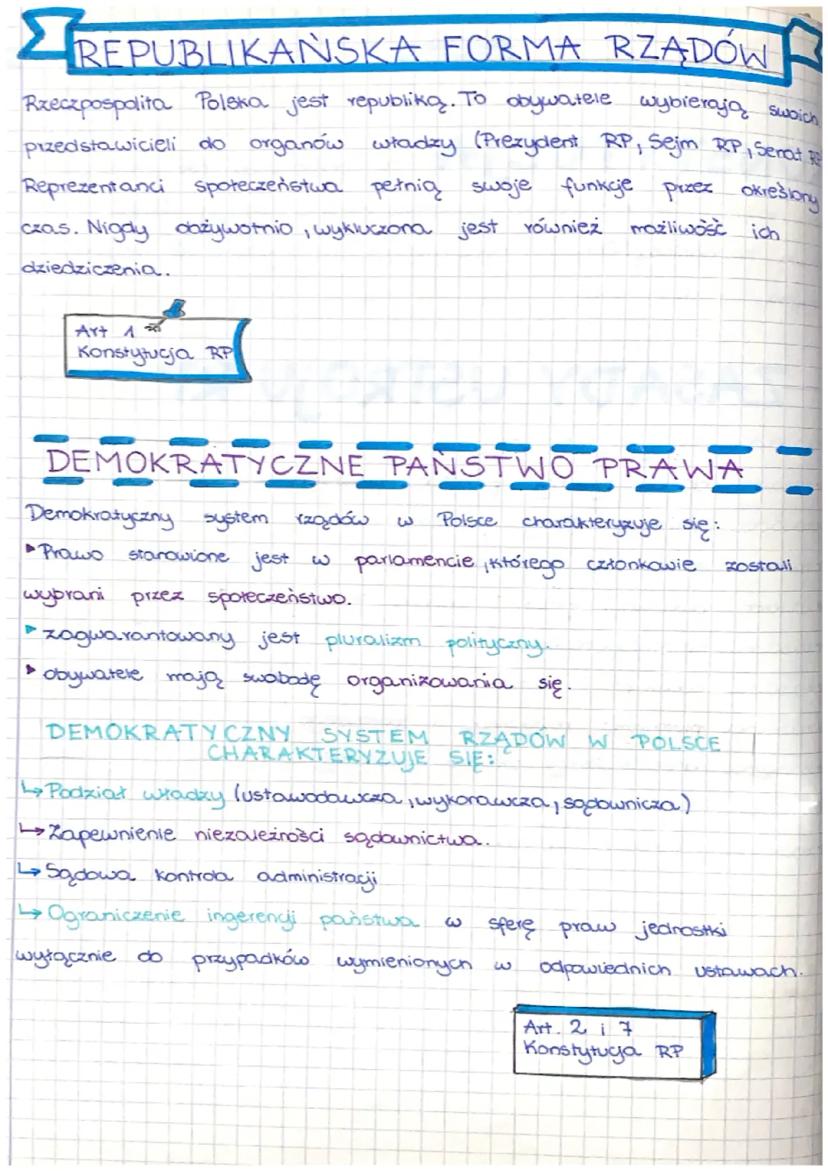 REPUBLIKAŃSKA FORMA RZĄDÓW
Rzeczpospolita Polska jest republiką. To obywatele wybierają swoich
przedstawicieli do organów władzy (Prezydent RP, Sejm RP, Senat RP
Reprezentanci społeczeństwa pełnią swoje funkcje przez określony
czas. Nigdy dożywotnio, wykluczona jest również możliwość ich
dziedziczenia.
Art 1
Konstytucja RP
DEMOKRATYCZNE PAŃSTWO PRAWA
Demokratyczny system rządów w Polsce charakteryzuje się:
▶Prawo stanowione jest w parlamencie, którego członkowie zostali
wybrani przez społeczeństwo.
▶zagwarantowany jest pluralizm polityczny.
▶obywatele mają swobodę organizowania się.
DEMOKRATYCZNY SYSTEM RZĄDÓW W POLSCE
CHARAKTERYZUJE SIĘ:
↳Podział władzy (ustawodawcza, wykonawcza, sądownicza)
↳Zapewnienie niezależności sądownictwa.
↳Sądowa kontrola administracji
↳Ograniczenie ingerencji państwa w sferę praw jednostki
wyłącznie do przypadków wymienionych w odpowiednich ustawach.
Art. 2 i 7
Konstytucja RP